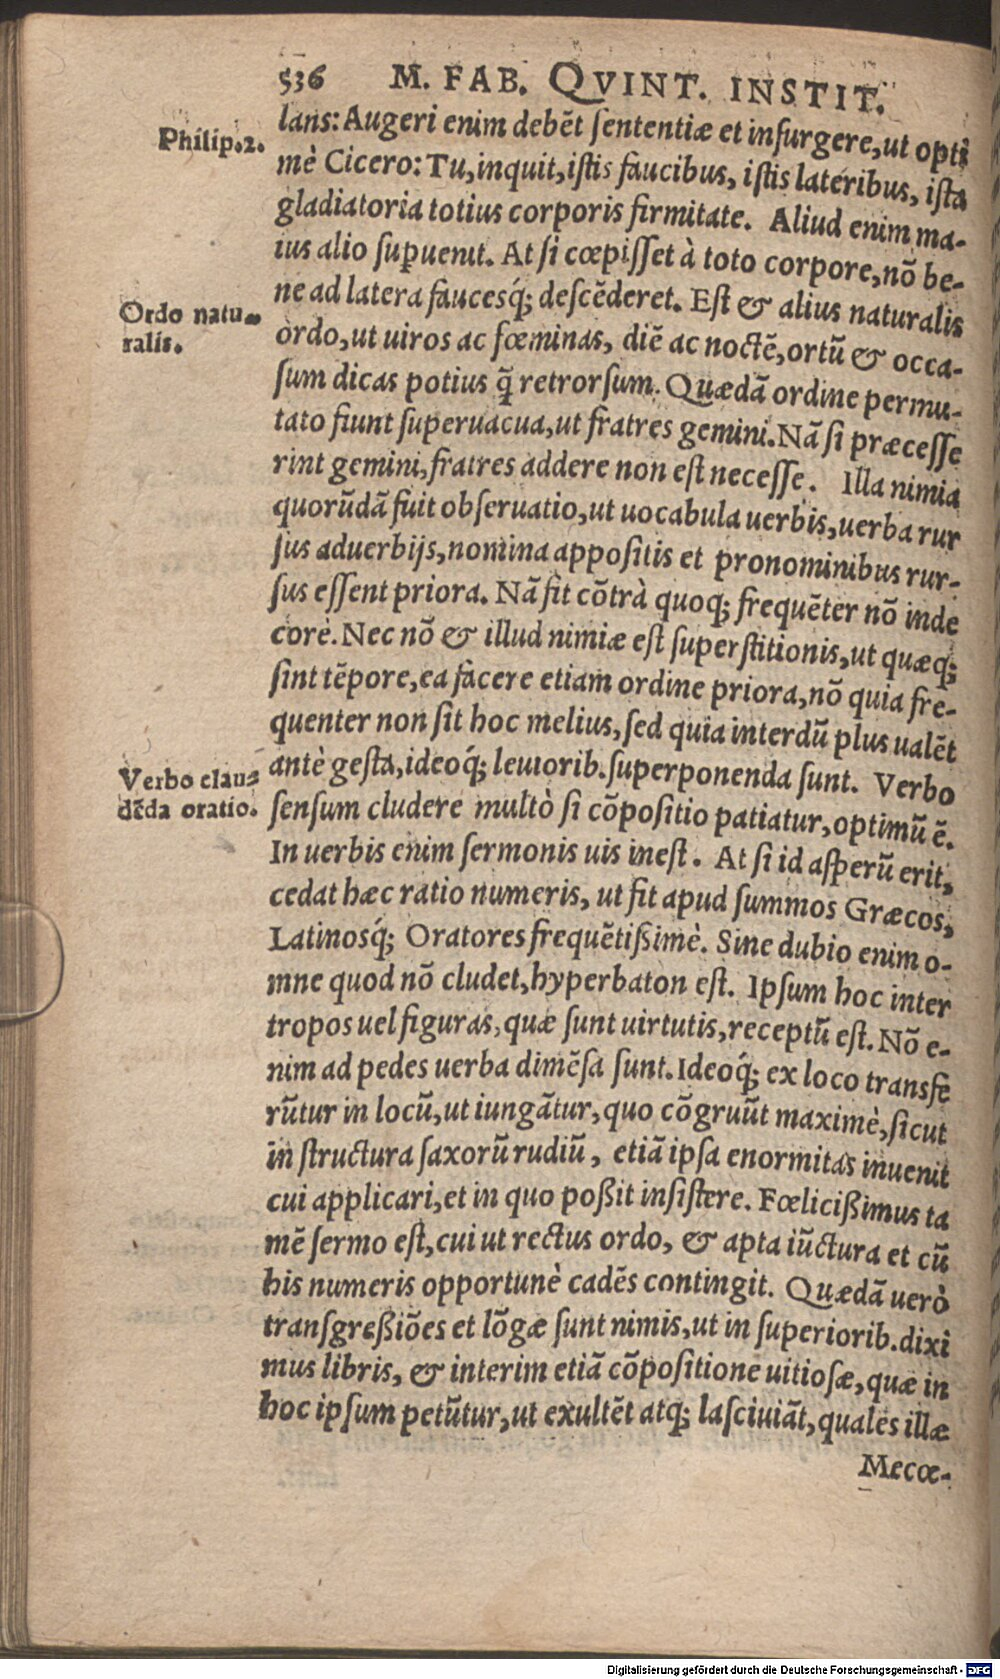 536 M. FAB. QVINT. INSTIT.
lans: Augeri enim debēt ſententiæ et inſurgere, ut opti
Philip. 2.
mè Cicero: Tu, inquit, iſtis faucibus, iſtis lateribus, iſta
gladiatoria totius corporis firmitate. Aliud enim ma-
ius alio supuenit. At ſi cœpiſſet à toto corpore, nō be-
ne ad latera faucesq́; deſcēderet. Eſt & alius naturalis
Ordo natu-
ralis.
ordo, ut uiros ac fœminas, diē ac noctē, ortū & occa-
ſum dicas potius q̄ retrorſum. Quædā ordine permu-
tato fiunt ſuperuacua, ut fratres gemini. Nā ſi præceſſe
rint gemini, fratres addere non eſt neceſſe. Illa nimia
quorūdā fuit obſeruatio, ut uocabula uerbis, uerba rur
ſus aduerbijs, nomina appoſitis et pronominibus rur-
ſus eſſent priora. Nā fit cōtrà quoq; frequēter nō inde
corè. Nec nō & illud nimiæ eſt ſuperſtitionis, ut quæq;
ſint tēpore, ea facere etiam ordine priora, nō quia fre-
quenter non ſit hoc melius, ſed quia interdū plus ualēt
antè geſta, ideoq́; leuiorib. ſuperponenda ſunt. Verbo
Verbo clau-
dēda oratio.
ſenſum cludere multò ſi cōpoſitio patiatur, optimū ē.
In uerbis enim ſermonis uis ineſt. At ſi id aſperū erit,
cedat hæc ratio numeris, ut fit apud ſummos Græcos,
Latinosq́; Oratores frequētiſſimè. Sine dubio enim o-
mne quod nō cludet, hyperbaton eſt. Ipſum hoc inter
tropos uel figuras, quæ ſunt uirtutis, receptū eſt. Nō e-
nim ad pedes uerba dimēſa ſunt. Ideoq́; ex loco transfe
rūtur in locū, ut iungātur, quo cōgruūt maximè, ſicut
in ſtructura ſaxorū rudiū, etiā ipſa enormitas inuenit
cui applicari, et in quo poßit inſiſtere. Fœlicißimus ta
mē ſermo eſt, cui ut rectus ordo, & apta iūctura et cū
his numeris opportunè cadēs contingit. Quædā uerò
tranſgreßiōes et lōgæ ſunt nimis, ut in ſuperiorib. dixi
mus libris, & interim etiā cōpoſitione uitioſæ, quæ in
hoc ipſum petūtur, ut exultēt atq; laſciuiāt, quales illæ
Mecœ-
Digitalisierung gefördert durch die Deutsche Forschungsgemeinschaft - DFG